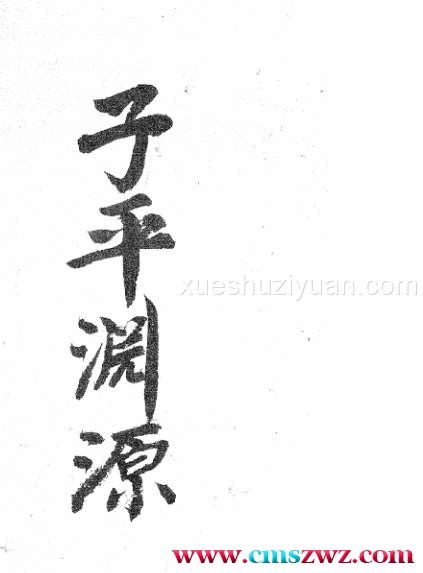 子平淵源
xueshuziyuan.com
www.cmszwz.com